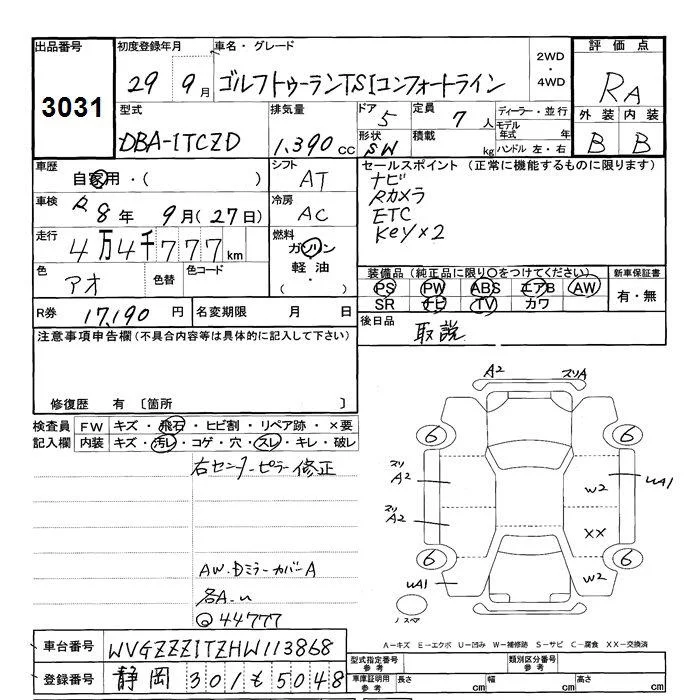 出品番号 初度登録年月 車名・グレード 2WD・4WD 評価点
3031 29年 9月 ゴルフトゥーランTSIコンフォートライン RA
型式 排気量 ドア 5 定員 7人 ディーラー・並行 外装 内装
DBA-1TCZD 1,390cc 形状 SW 積載 kg モデル年式 年 ハンドル 左・右 B B
車歴 自家用・( ) シフト AT セールスポイント (正常に機能するものに限ります)
車検 R8年 9月(27日) 冷房 AC ナビ
Rカメラ
ETC
Key×2
走行 4万4千777km 燃料 ガソリン 軽油 ( ・ )
色 アオ 色替 色コード 装備品(純正品に限り○をつけてください) 新車保証書
PS PW ABS エアB AW 有・無
SR ナビ TV カワ
R券 17,190円 名変期限 月 日 後日品 取説
注意事項申告欄(不具合内容等は具体的に記入して下さい)
修復歴 有 〔箇所 〕
検査員 FW キズ・飛石・ヒビ割・リペア跡・×要
記入欄 内装 キズ・汚レ・コゲ・穴・スレ・キレ・破レ
右センターピラー修正
AW.Dミラーカバー A
各A.u
44777
A2 スリA
6 6
スリ A2 W2 uA1
スリ A2 XX
6 6
uA1 W2
ノスペア
A-キズ E-エクボ U-凹み W-補修跡 S-サビ C-腐食 XX-交換済
車台番号 WVGZZZ1TZHW113868 型式指定番号 参考 類別区分番号 参考
登録番号 静岡 301 も 5048 車庫証明用 参考 長さ cm 幅 cm 高さ cm